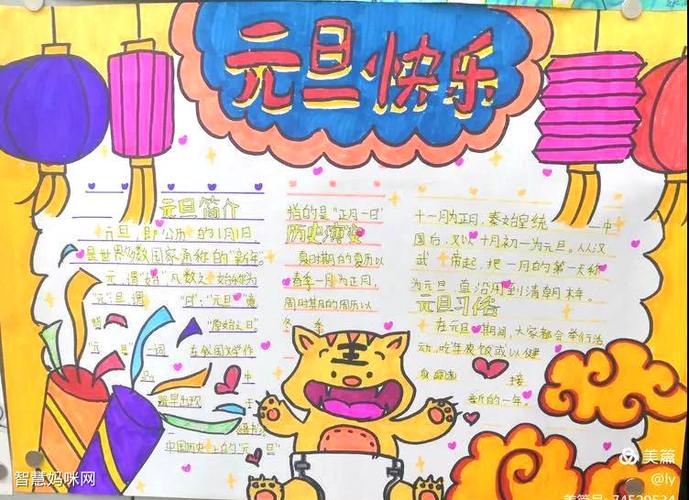 元旦快乐
元旦简介
元旦，即公历的1月1日
是世界多数国家通称的“新年。
元，谓“始”凡数之始称为
“元”旦谓“日”；“元旦”意
“原始之日”
“元旦”一词
中
最早出现于
中国历史上的“元旦”
指的是“正月一日”
历史演变
夏时期的夏历以
春季一月为正月，
周时期的周历以
冬季
十一月为正月，秦始皇统一中
国后，又以十月初一为元旦。从汉
武帝起，把一月的第一天称
为元旦，一直沿用到清朝末年。
元旦习俗
在元旦期间，大家都会举行活
动，吃年夜饭或以健
接
新的一年。
智慧妈咪网
美篇
@ly